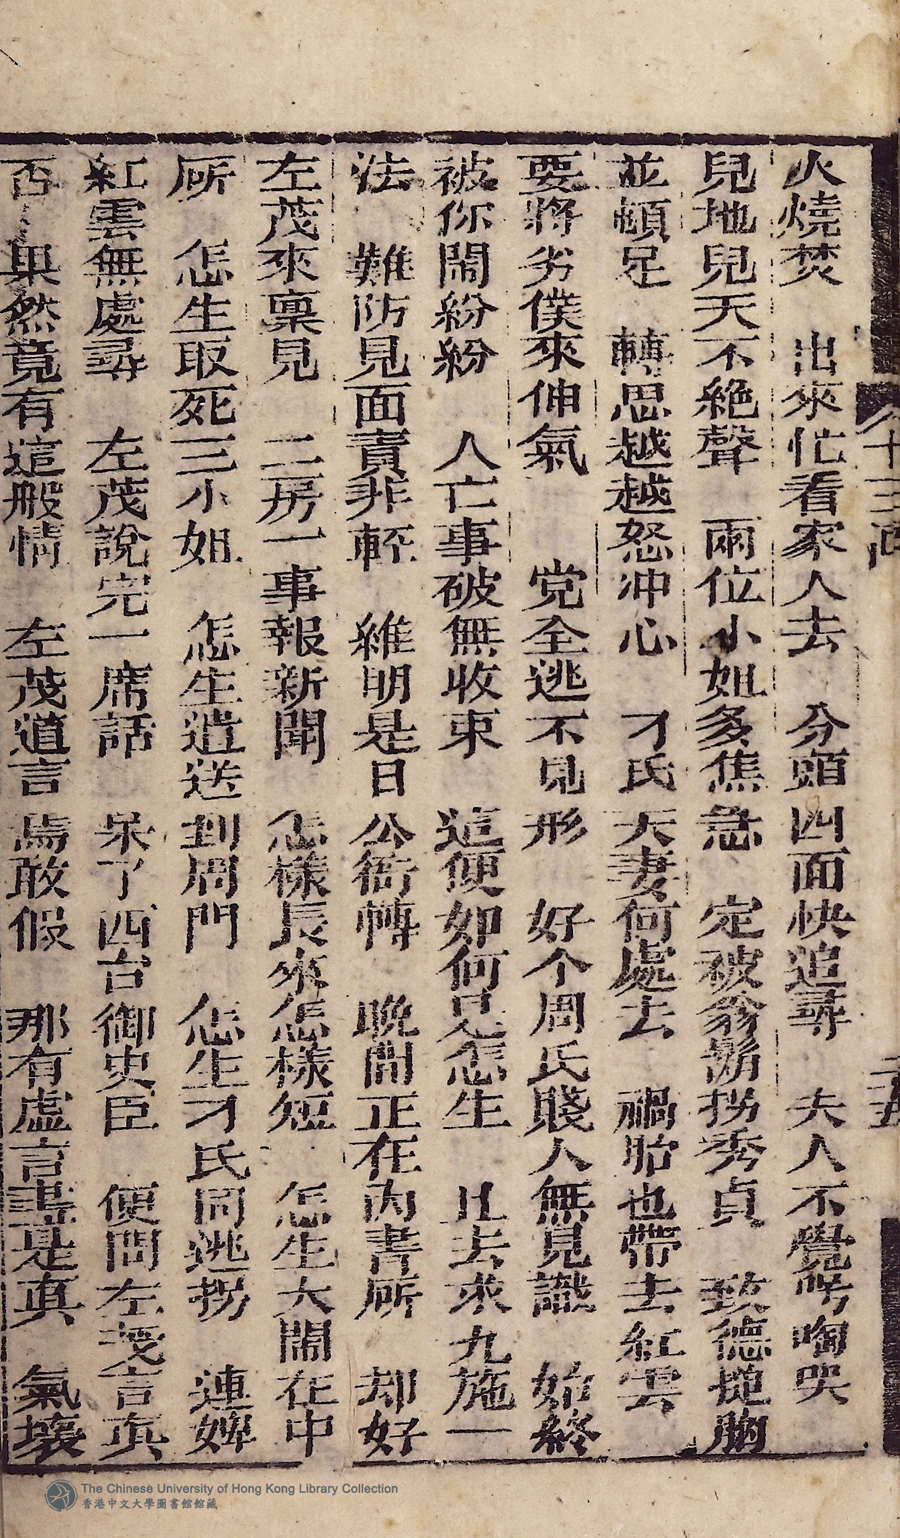 火燒焚　出來忙看家人去　分頭四面快追尋　夫人不覺咢啕哭
兒地兒天不絕聲　兩位小姐多焦急　定被翁鬍拐秀貞　致德搥胸
並頓足　轉思越越怒冲心　刁氏夫妻何處去　禍胎也帶去紅雲
要將劣僕來伸氣　党全逃不見形　好个周氏賤人無見識　始終
被你鬧紛紛　人亡事破無收束　這便如何是怎生　且去求九施一
法　難防見面責非輕　維明是日公衙轉　晚間正在內書所　却好
左茂來稟見　二房一事報新聞　怎樣長來怎樣短　怎生大鬧在中
所　怎生取死三小姐　怎生遣送到周門　怎生刁氏同逃拐　連婢
紅雲無處尋　左茂說完一席話　呆了西台御史臣　便問左茂言真
否　果然竟有這般情　左茂道言焉敢假　那有虛言盡是真　氣壞
十三回
The Chinese University of Hong Kong Library Collection
香港中文大學圖書館館藏